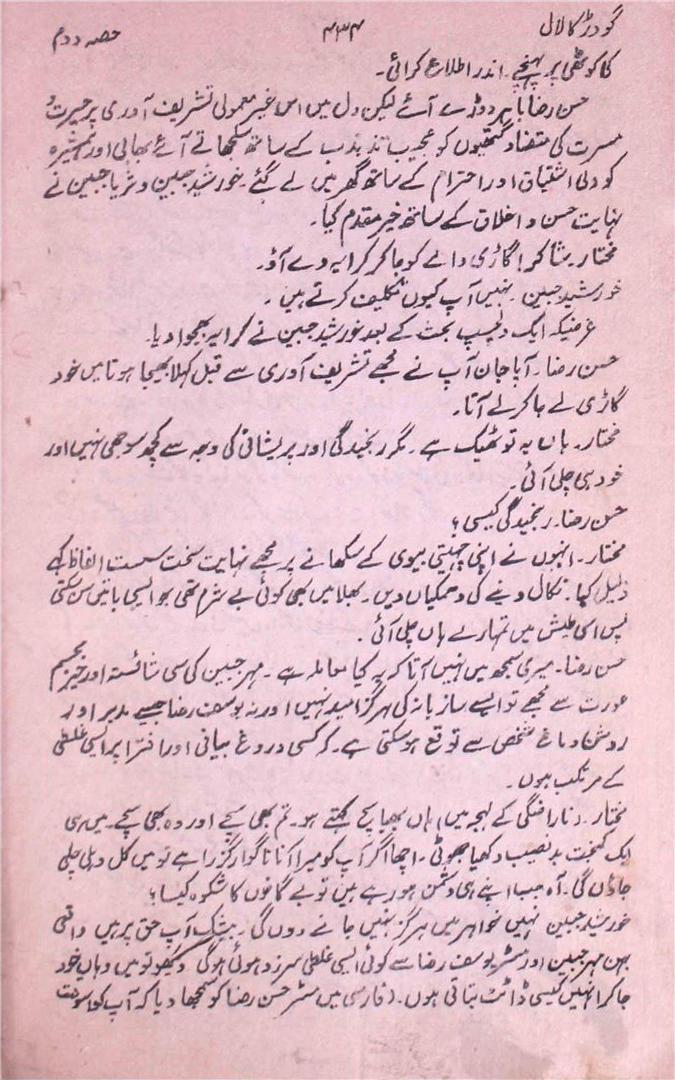 گودڑ کا لال ۴۳۴ حصہ دوم
کا کوٹھی پر پہنچے۔ اندر اطلاع کرائی۔
حسن رضا باہر دوڑے آئے لیکن دل میں اس غیر معمولی تشریف آوری پر حیرت و
مسرت کی متضاد گتھیوں کو عجیب تذبذب کے ساتھ سلجھاتے آئے بھائی اور ہمشیرہ
کو دلی اشتیاق اور احترام کے ساتھ گھر میں لے گئے۔ خورشید جبین و ثریا جبین نے
نہایت حسن و اخلاق کے ساتھ خیر مقدم کیا۔
مختار۔ شاکر! گاڑی والے کو جا کر کرایہ دے آؤ۔
خورشید جبین۔ نہیں آپ کیوں تکلیف کرتے ہیں۔
غرضیکہ ایک دلچسپ بحث کے بعد خورشید جبین نے کرایہ بھجوا دیا۔
حسن رضا۔ آپا جان آپ نے مجھے تشریف آوری سے قبل کہلا بھیجا ہوتا میں خود
گاڑی لے جا کر لے آتا۔
مختار۔ ہاں یہ تو ٹھیک ہے۔ مگر رنجیدگی اور پریشانی کی وجہ سے کچھ سوجھی نہیں اور
خود ہی چلی آئی۔
حسن رضا۔ رنجیدگی کیسی؟
مختار۔ انہوں نے اپنی چہیتی بیوی کے سکھانے پر مجھے نہایت سخت سست الفاظ کہے
ذلیل کیا۔ نکال دینے کی دھمکیاں دیں۔ بھلا میں بھی کوئی بے شرم تھی جو ایسی باتیں سن سکتی
بس اسی طیش میں تمہارے ہاں چلی آئی۔
حسن رضا۔ میری سمجھ میں نہیں آتا کہ یہ کیا معاملہ ہے۔ مہر جبین کی سی شائستہ اور خیر مجسم
عورت سے مجھے تو ایسے ساز باز کی ہرگز امید نہیں اور نہ یوسف رضا جیسے مدبر اور
روشن دماغ شخص سے توقع ہو سکتی ہے۔ کہ کسی دروغ بیانی اور افترا پر ایسی غلطی
کے مرتکب ہوں۔
مختار۔ (ناراضگی کے لہجہ میں) ہاں بھیا سچ کہتے ہو۔ تم بھی سچے اور وہ بھی سچے۔ میں ہی
ایک کمبخت بدنصیب دکھیا جھوٹی۔ اچھا اگر آپ کو میرا آنا ناگوار گزرا ہے تو میں کل دہلی چلی
جاؤں گی۔ آہ جب اپنے ہی دشمن ہو رہے ہیں تو بے گانوں کا شکوہ کیسا؟
خورشید جبین نہیں خواہر میں ہرگز نہیں جانے دوں گی۔ بیشک آپ حق پر ہیں واقعی
بہن مہر جبین اور مسٹر یوسف رضا سے کوئی ایسی غلطی سرزد ہوئی ہوگی دیکھو تو میں وہاں خود
جا کر انہیں کیسی ڈانٹ بتاتی ہوں۔ (فارسی میں مسٹر حسن رضا کو سمجھا دیا کہ آپ کو اسوقت